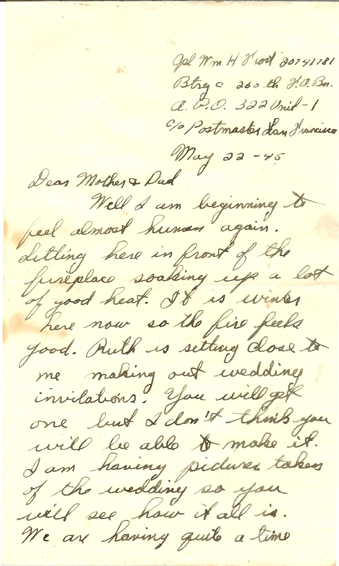 Cpl Wm H Frost 20741781
Btry C 260th F.A. Bn.
A.P.O. 322 Unit-1
c/o Postmaster San Francisco
May 22-45
Dear Mother & Dad
Well I am beginning to
feel almost human again.
Sitting here in front of the
fireplace soaking up a lot
of good heat. It is winter
here now so the fire feels
good. Ruth is sitting close to
me making out wedding
invitations. You will get
one but I don't think you
will be able to make it.
I am having pictures taken
of the wedding so you
will see how it all is.
We are having quite a time